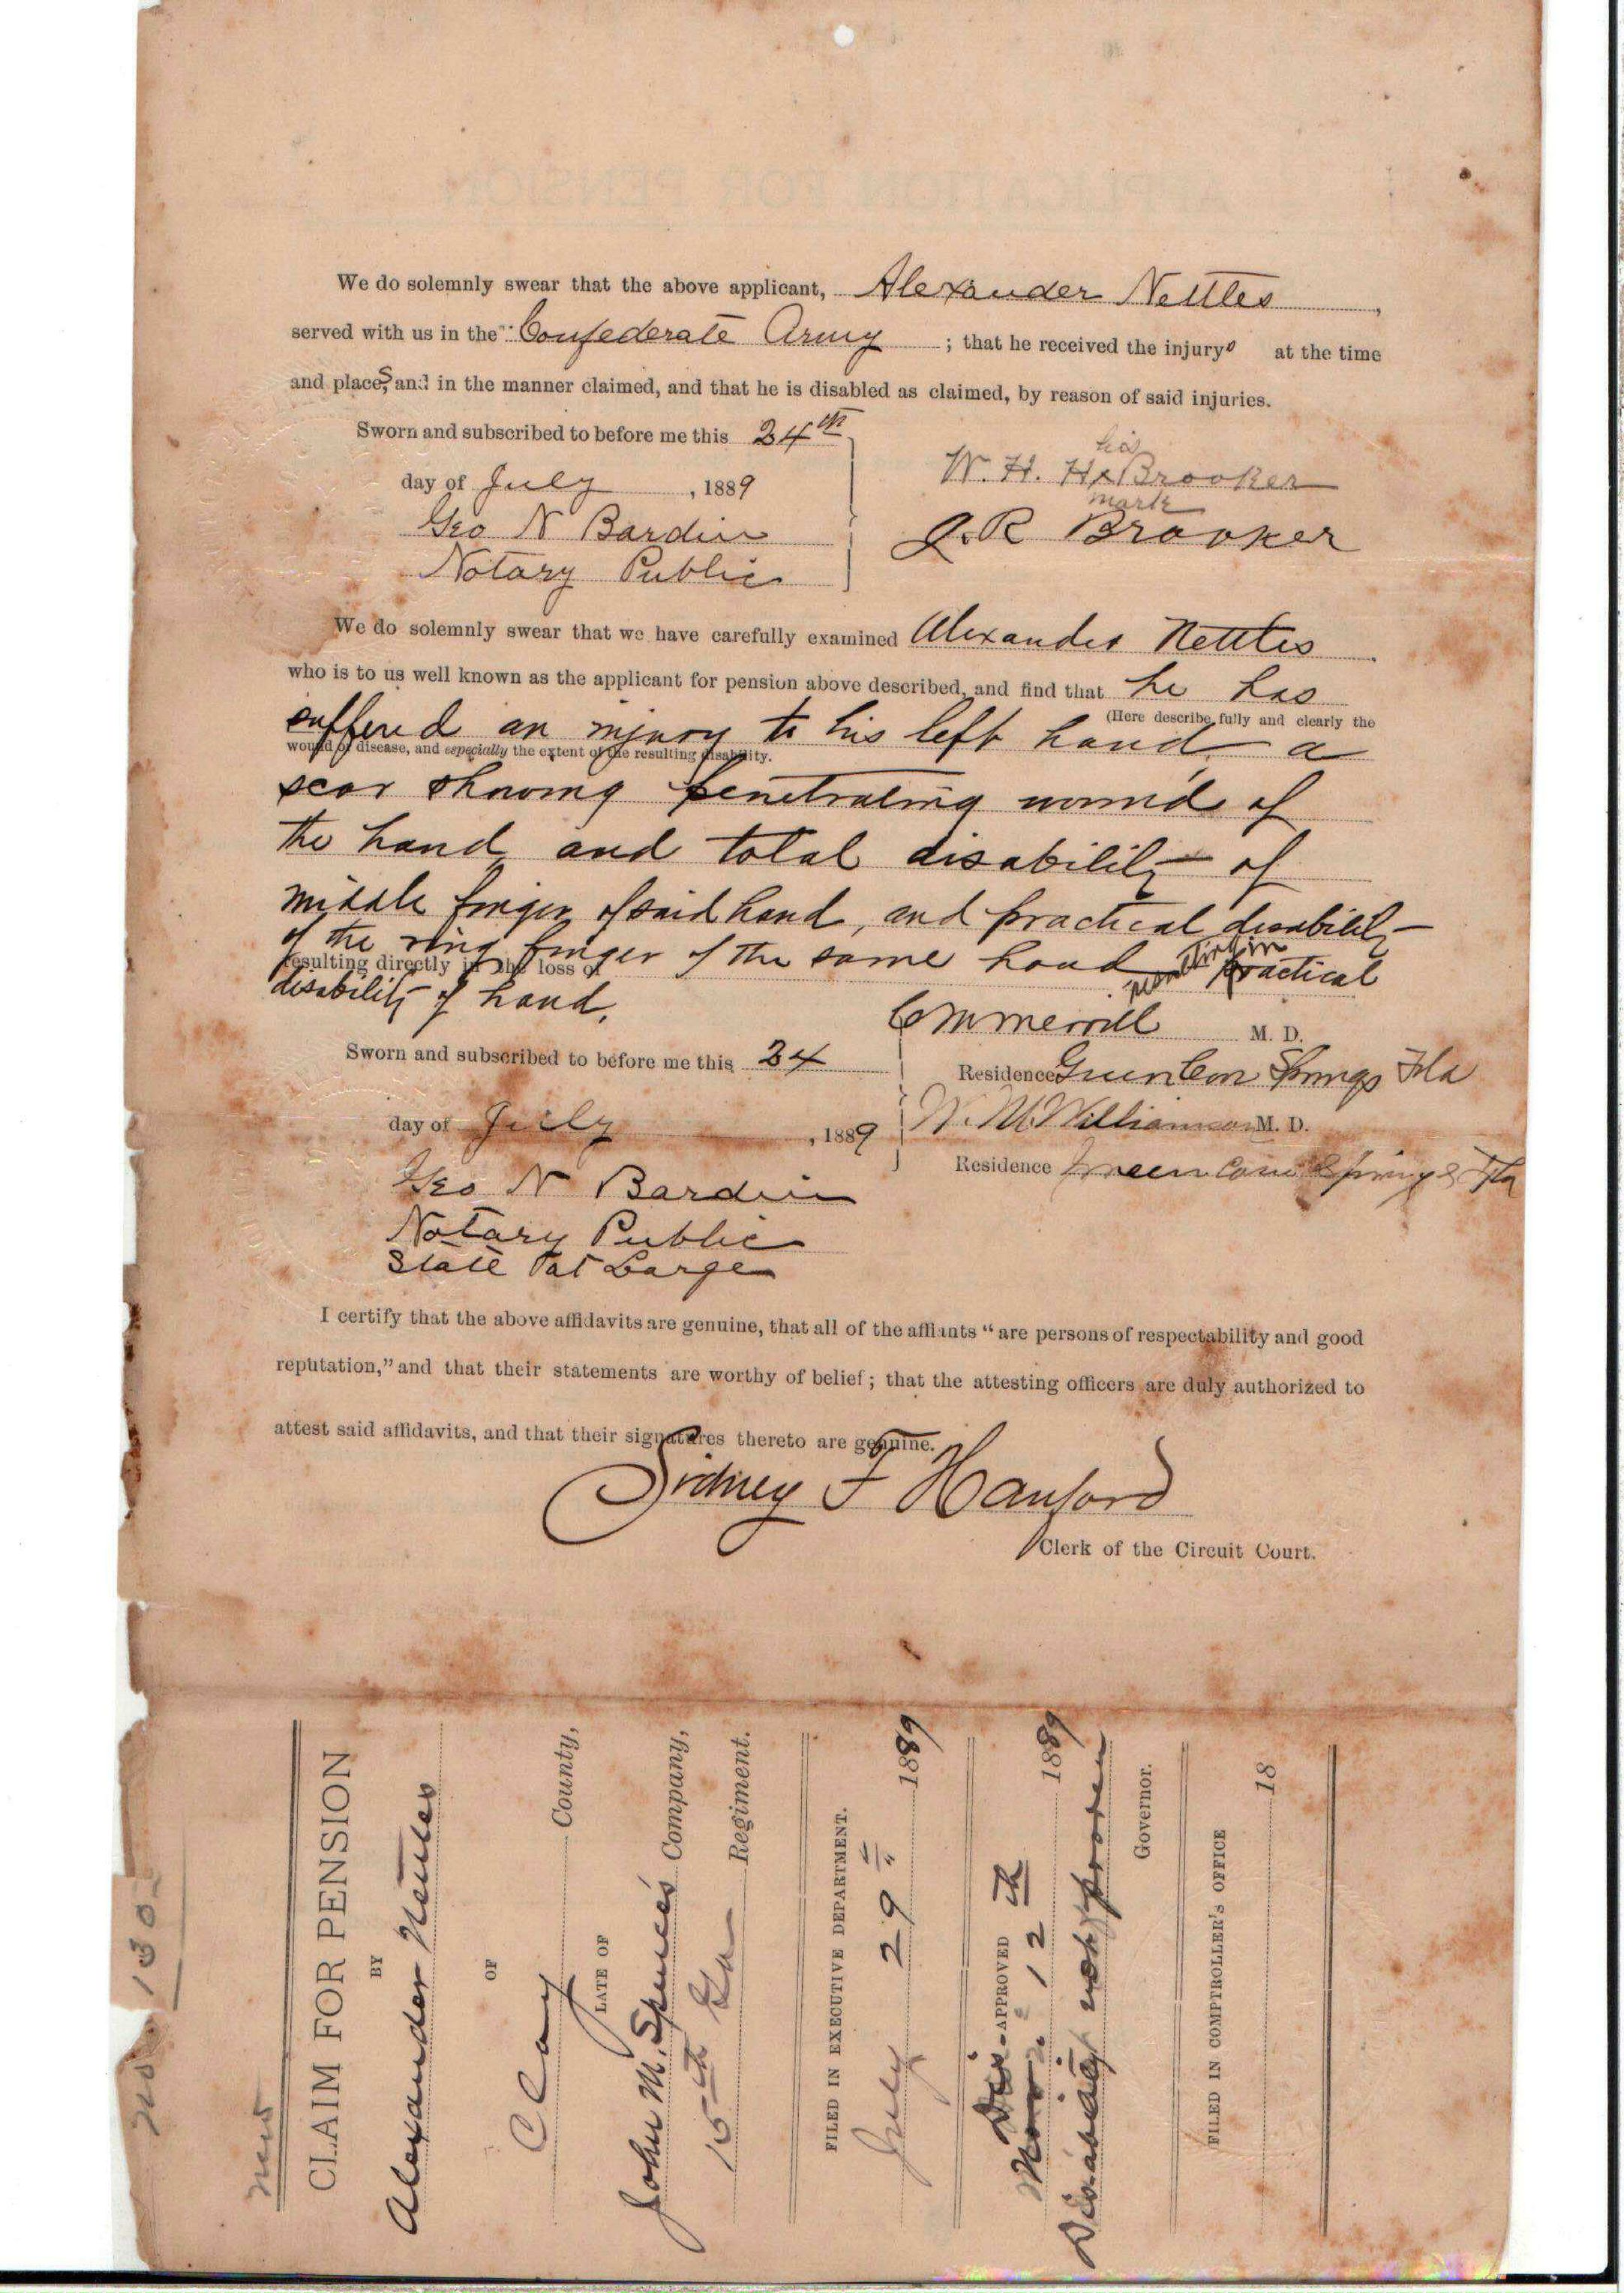 We do solemnly swear that the above applicant, Alexander Nettles,
served with us in the Confederate Army; that he received the injurys at the time
and places, and in the manner claimed, and that he is disabled as claimed, by reason of said injuries.
Sworn and subscribed to before me this 24th
day of July, 1889
Geo N Bardin
Notary Public
his
W. H. H x Brooker
mark
J. R Brooker
We do solemnly swear that we have carefully examined Alexander Nettles
who is to us well known as the applicant for pension above described, and find that he has
(Here describe fully and clearly the
suffered an injury to his left hand a
wound or disease, and especially the extent of the resulting disability.
scar showing penetrating wound of
the hand and total disability of
middle finger of said hand, and practical disability
of the ring finger of the same hand resulting in practical
resulting directly in the loss of
disability of hand.
C M Merrill M. D.
Sworn and subscribed to before me this 24
Residence Green Cove Springs Fla
day of July, 1889
W. M. Williamson M. D.
Residence Green Cove Springs Fla
Geo N Bardin
Notary Public
State at Large
I certify that the above affidavits are genuine, that all of the affiants "are persons of respectability and good
reputation," and that their statements are worthy of belief; that the attesting officers are duly authorized to
attest said affidavits, and that their signatures thereto are genuine.
Sidney F Hanford
Clerk of the Circuit Court.
No 130
New
CLAIM FOR PENSION
BY
Alexander Nettles
OF
Clay County,
LATE OF
John M. Spence's Company,
15th Ga Regiment.
FILED IN EXECUTIVE DEPARTMENT.
July 29" 1889
Dis-APPROVED
Nov. 12th 1889
Disability not proven
Governor.
FILED IN COMPTROLLER'S OFFICE
18